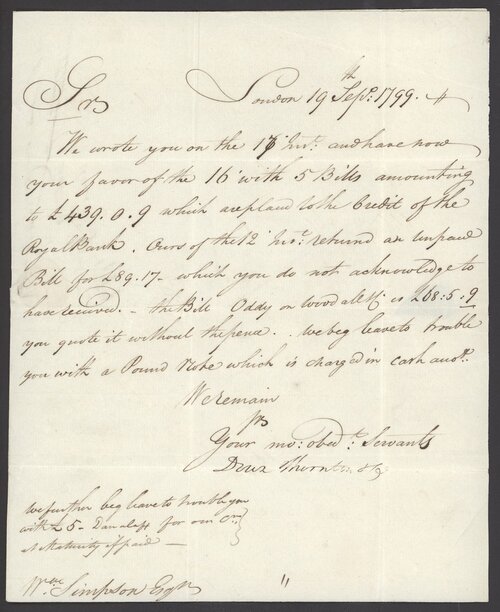 London 19th Sepr. 1799.
Sir
We wrote you on the 17 Inst. and have now
your favor of the 16 with 5 Bills amounting
to £439.0.9 which are placed to the Credit of the
Royal Bank. Ours of the 12 Inst. returnd an unpaid
Bill for £89.17- which you do not acknowledge to
have received. - the Bill Oddy on is £68:5.9
you quote it without the pence. we beg leave to trouble
you with a Pound Note which is charged in cash
We remain
Sir
Your mo: obedt. Servants
Down Thornton & Co
we further beg leave to trouble you
with £5 - for our
at Maturity if paid —
Wm. Simpson Esqr